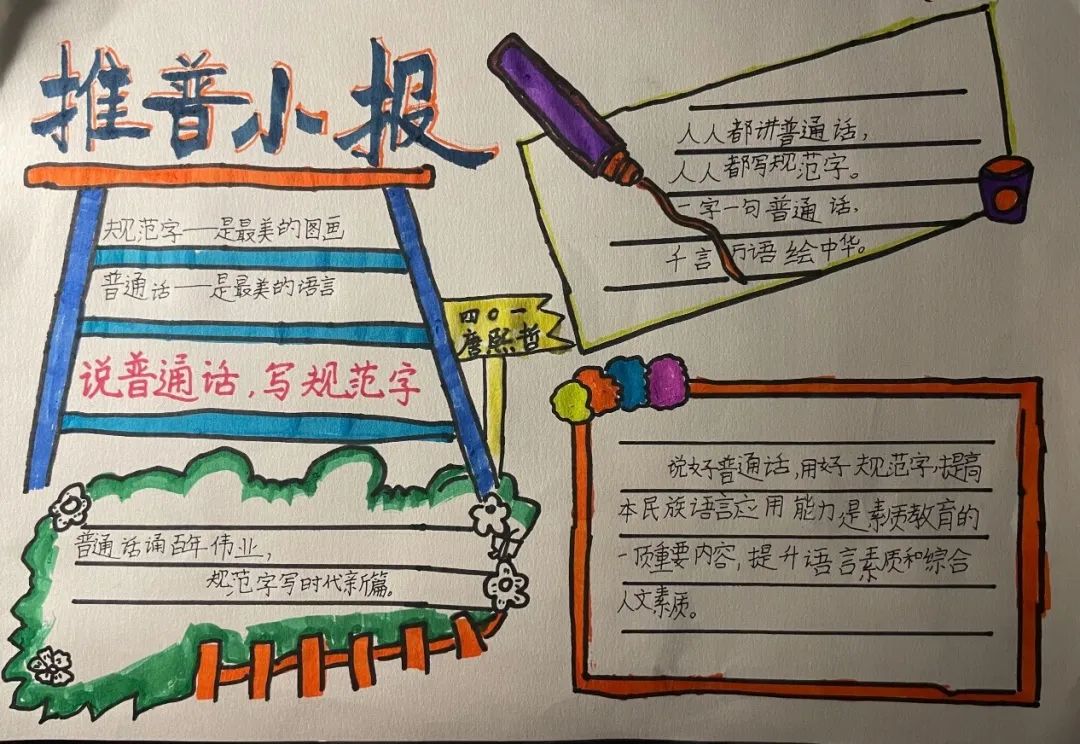 推普小报
规范字——是最美的图画
普通话——是最美的语言
说普通话，写规范字
四〇一
唐熙哲
普通话诵百年伟业，
规范字写时代新篇。
人人都讲普通话，
人人都写规范字。
一字一句普通话，
千言万语绘中华。
说好普通话，用好规范字，提高
本民族语言应用能力是素质教育的
一项重要内容，提升语言素质和综合
人文素质。